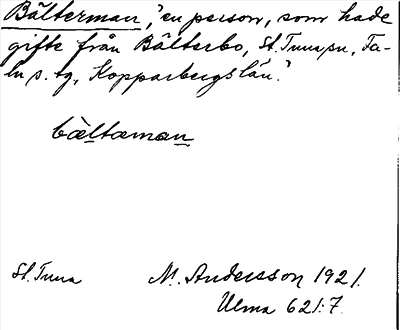 Bälterman, "en person, som hade
gifte från Bälterbo, St. Tuna sn, Fa-
lu s. tg, Kopparbergs län."
bæ̀ltəman
St. Tuna
M. Andersson 1921.
Ulma 621:7.